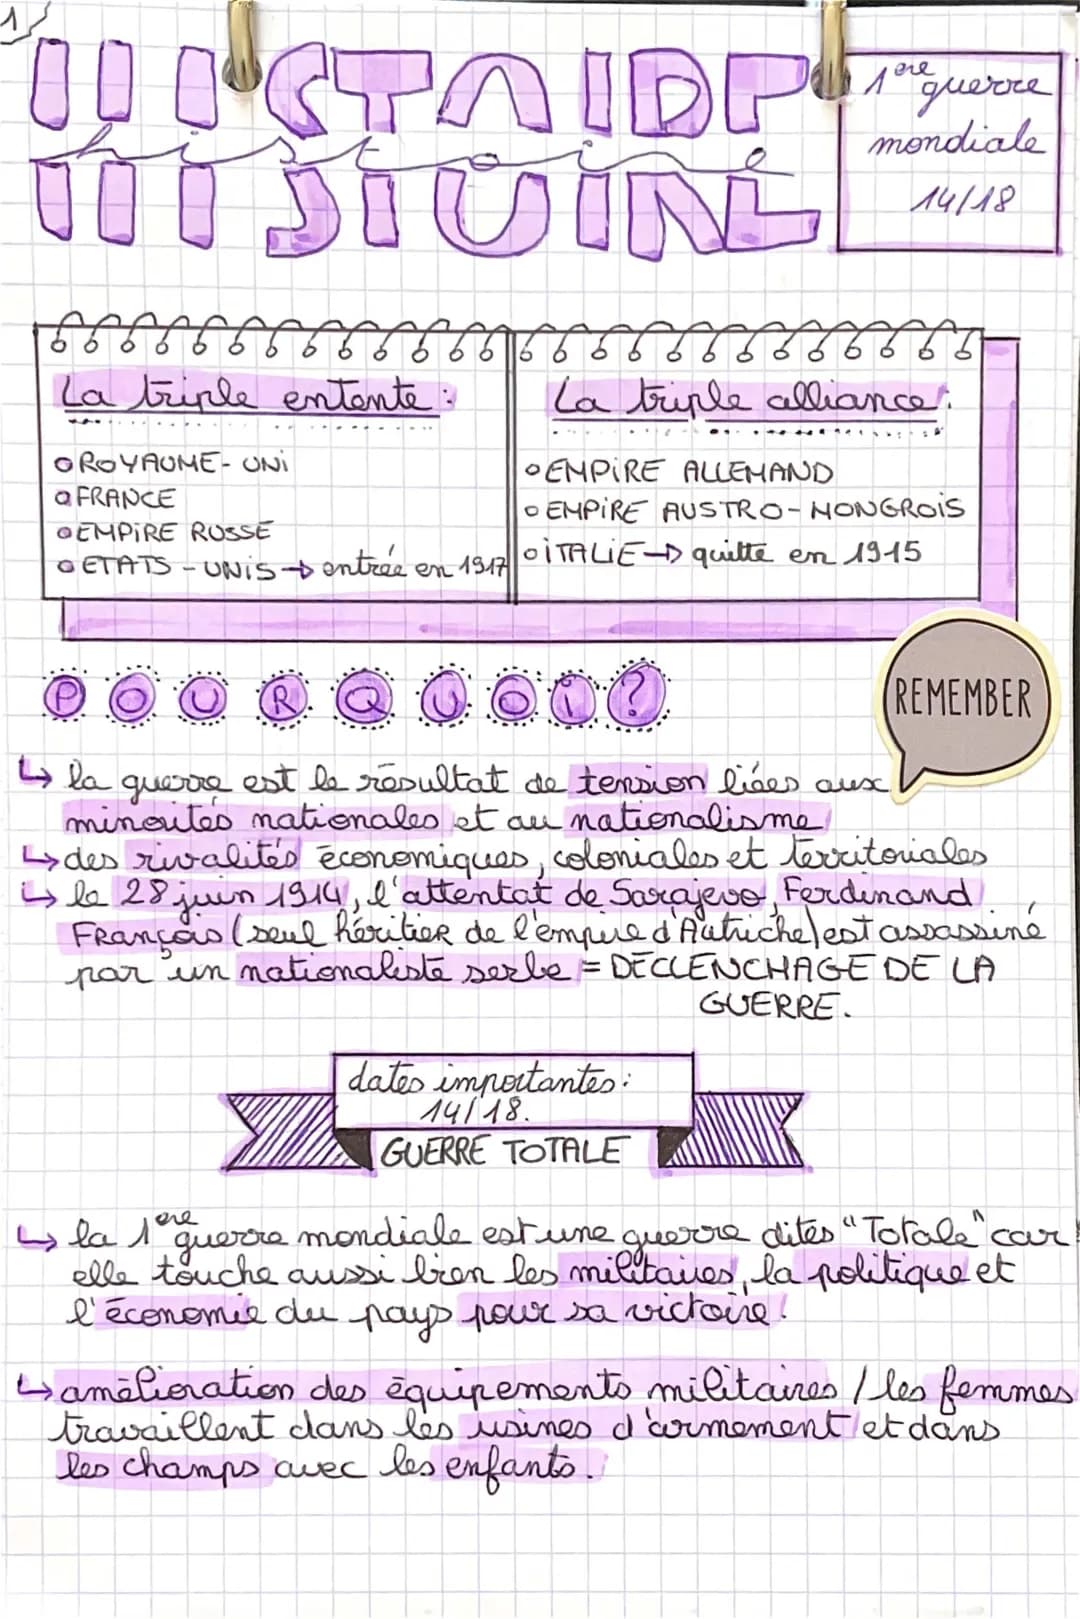 1/
HISTOIRE
histoire
1ere guerre
mondiale
14/18
La triple entente:
ROYAUME-UNi
FRANCE
EMPiRE RUSSE
ETATS-UNiS → entrée en 1917
La triple alliance:
EMPiRE ALLEMAND
EMPiRE AUSTRO-HONGROiS
iTALiE → quitte en 1915
POURQUOi?
REMEMBER
↳ la guerre est le résultat de tension liées aux
minorités nationales et au nationalisme
↳ des rivalités économiques, coloniales et territoriales
↳ le 28 juin 1914, l'attentat de Sarajevo, Ferdinand
François (seul héritier de l'empire d'Autriche) est assassiné
par un nationaliste serbe = DÉCLENCHAGE DE LA
GUERRE.
dates importantes:
14/18.
GUERRE TOTALE
↳ la 1ere guerre mondiale est une guerre dites "Totale" car
elle touche aussi bien les militaires, la politique et
l'économie du pays pour sa victoire.
↳ amélioration des équipements militaires / les femmes
travaillent dans les usines d'armement et dans
les champs avec les enfants.